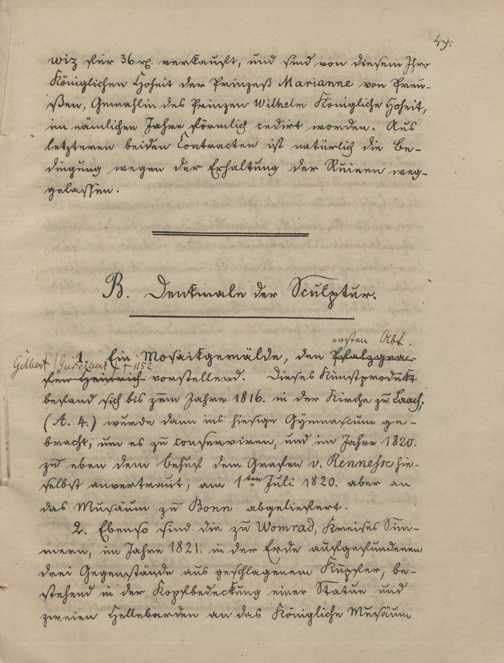 49.
wiz für 36 rp verkauft, und sind von diesem Ihro
Königlichen Hoheit der Prinzeß Marianne von Preu-
ßen, Gemahlin des Prinzen Wilhelm Königliche Hoheit,
im nämlichen Jahre förmlich cedirt worden. Aus
letzteren beiden Contracten ist natürlich die Be-
dingung wegen der Erhaltung der Ruinen weg-
gelassen.
B. Denkmale der Sculptur.
ersten Abt.
1. Ein Mosaikgemälde, den Pfalzgra-
Gilbert † 1152
fen Heinrich vorstellend. Dieses Kunstprodukt
befand sich bis zum Jahre 1816. in der Kirche zu Laach,
(A. 4.) wurde dann ins hiesige Gymnasium ge-
bracht, um es zu conserviren, und im Jahre 1820.
zu eben dem Behuf dem Grafen v. Rennesse hie-
selbst anvertraut, am 1ten Juli 1820. aber an
das Musäum zu Bonn abgeliefert.
2. Ebenso sind die zu Womrad, Kreises Sim-
mern, im Jahre 1821. in der Erde aufgefundenen
drei Gegenstände aus geschlagenem Kupfer, be-
stehend in der Kopfbedeckung einer Statue und
zweien Hellebarden an das Königliche Musäum